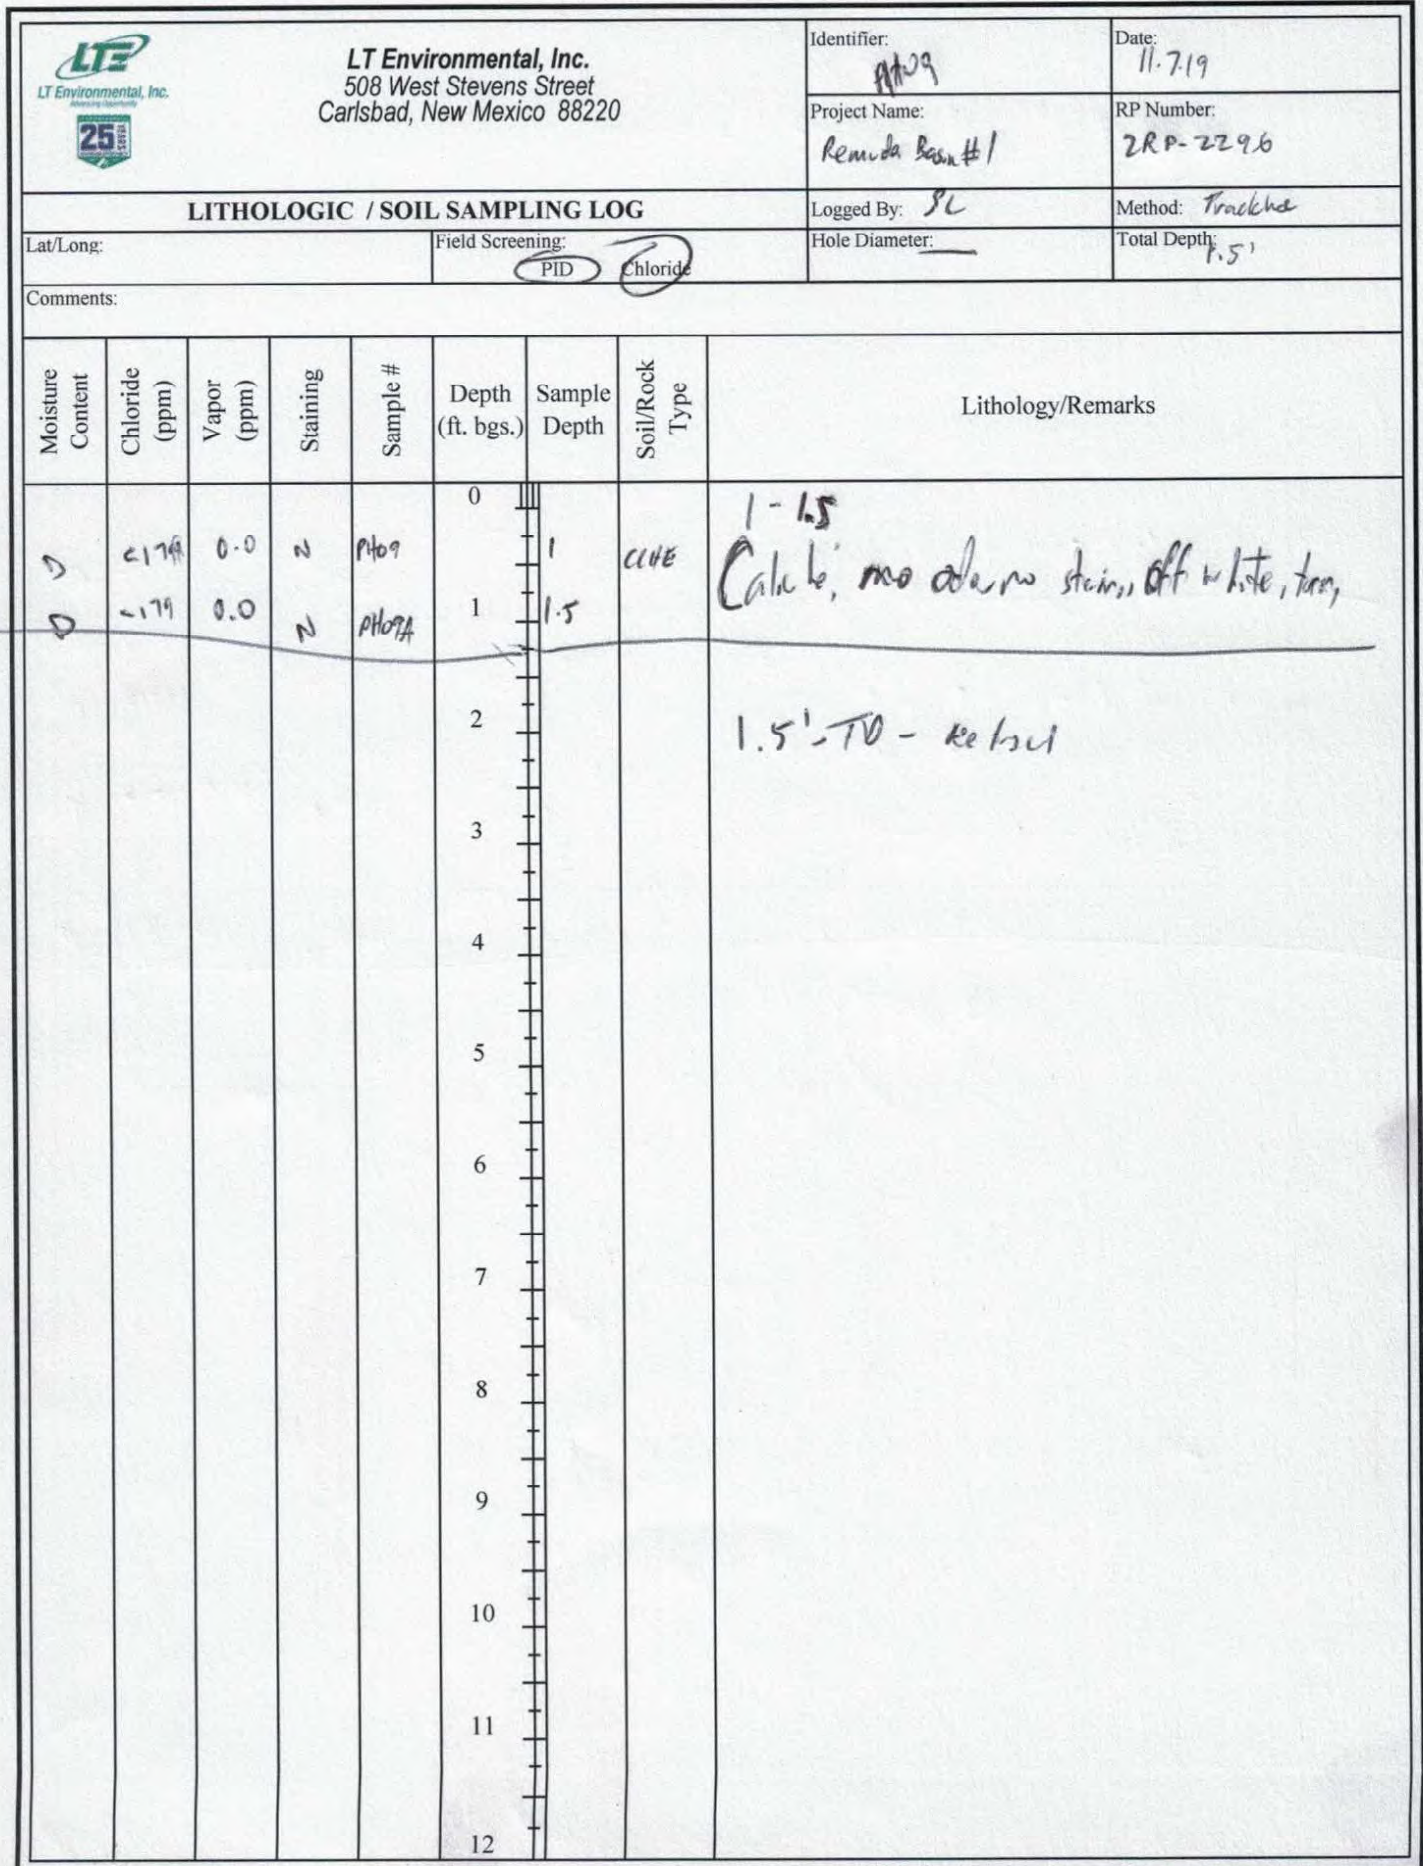 LTE
LT Environmental, Inc.
Advancing Opportunity
25 YEARS
LT Environmental, Inc.
508 West Stevens Street
Carlsbad, New Mexico 88220
Identifier:
PH09
Date:
11.7.19
Project Name:
Remuda Basin #1
RP Number:
2RP-2296
LITHOLOGIC / SOIL SAMPLING LOG
Logged By:
Method: Trackhoe
Lat/Long:
Field Screening:
PID Chloride
Hole Diameter:
Total Depth:
1.5'
Comments:
Moisture Content
Chloride (ppm)
Vapor (ppm)
Staining
Sample #
Depth (ft. bgs.)
Sample Depth
Soil/Rock Type
Lithology/Remarks
0
1 - 1.5
D <179 0.0 N PH09 1 CCHE Caliche, no odor no stain, off white, tan,
D <179 0.0 N PH09A 1 1.5
2
1.5' - TD -
3
4
5
6
7
8
9
10
11
12